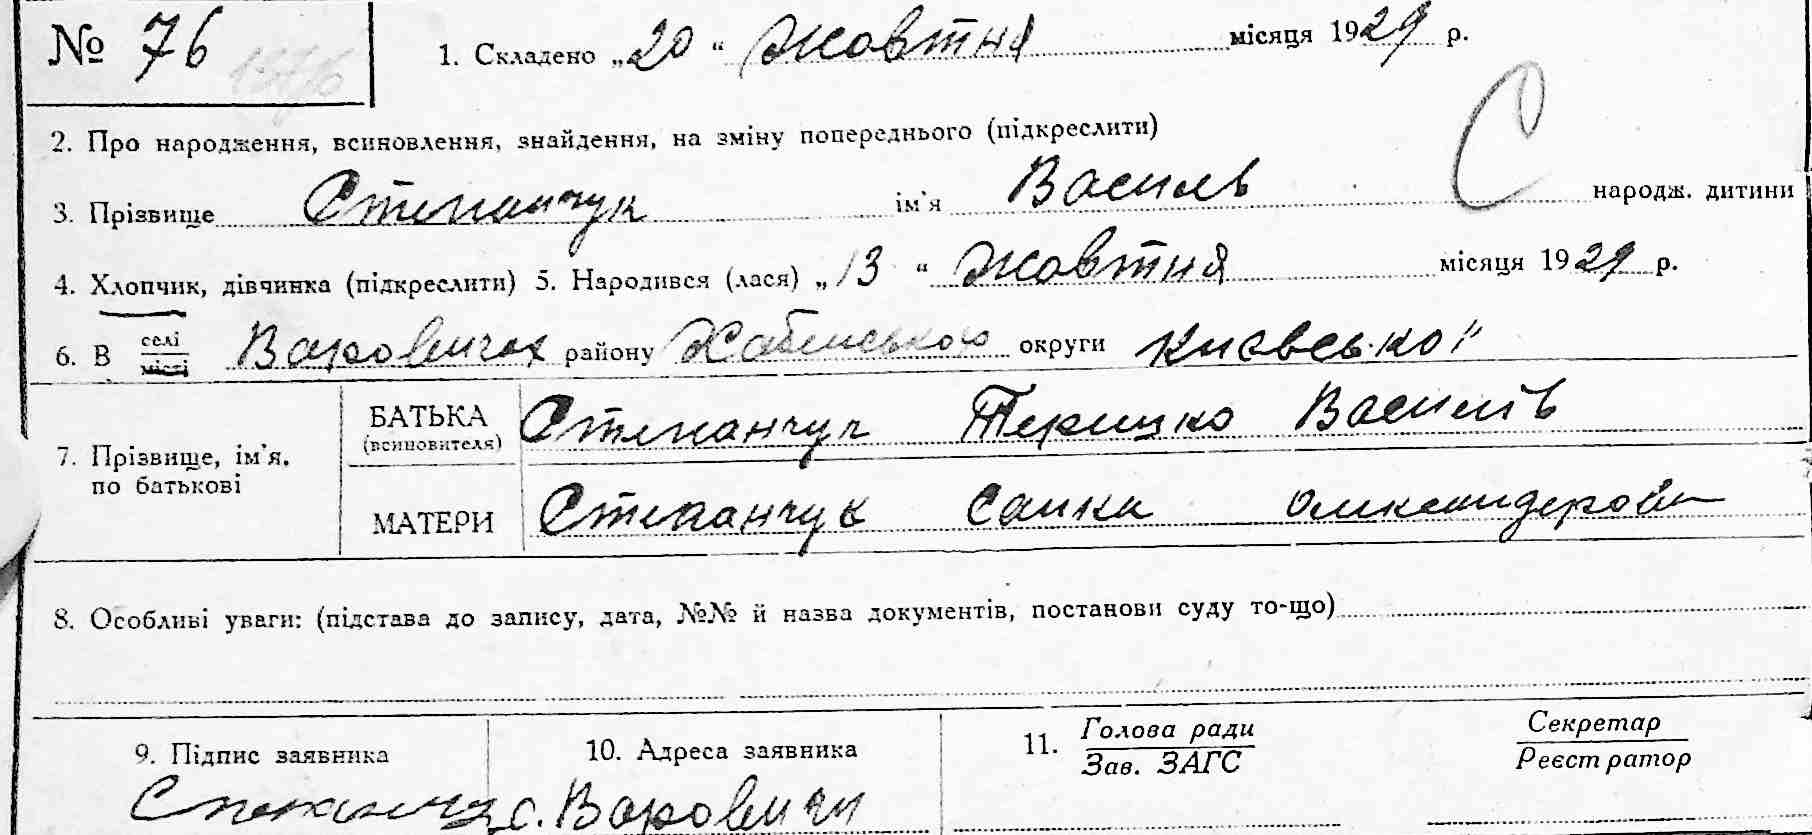 № 76
1. Складено „20“ Жовтня місяця 1929 р.
2. Про народження, всиновлення, знайдення, на зміну попереднього (підкреслити)
3. Прізвище Степанчук ім'я Василь народж. дитини
С
4. Хлопчик, дівчинка (підкреслити) 5. Народився (лася) „13“ Жовтня місяця 1929 р.
6. В селі місті Варовичах району Хабенського округи Київської
7. Прізвище, ім'я, по батькові
БАТЬКА (всиновителя) Степанчук Терешко Василів
МАТЕРИ Степанчук Санка
8. Особливі уваги: (підстава до запису, дата, №№ й назва документів, постанови суду то-що)
9. Підпис заявника 10. Адреса заявника 11. Голова ради Секретар
Зав. ЗАГС Реєстратор
Степанчук с. Варовичи